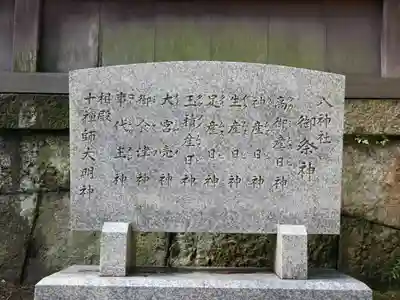 八神社
御祭神
高御産日神
神産日神
生産日神
足産日神
玉積産日神
大宮売神
御食津神
事代主神
相殿
十禅師大明神